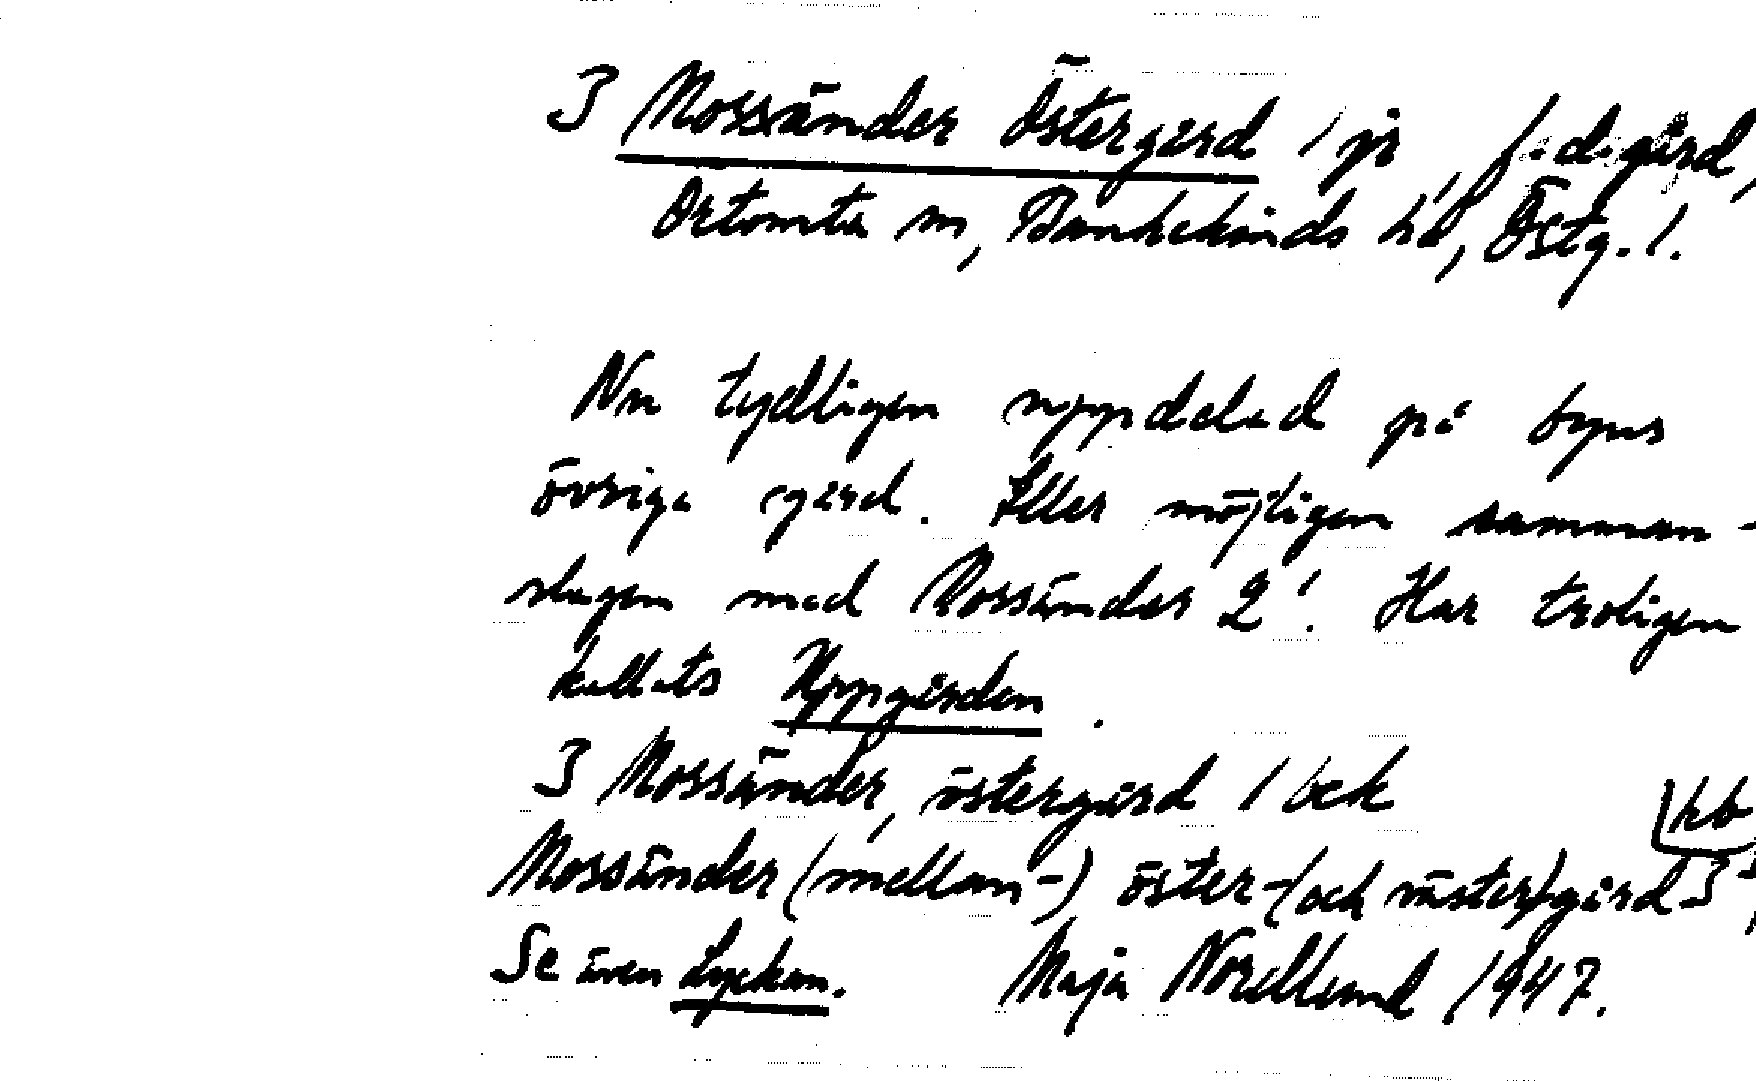 3 Mossänder Östergård 1 på, f.d. gård,
Örtomta sn, Bankekinds hd, Östg. l.
Nu tydligen uppdelad på byns
övriga gård. Eller möjligen samman-
slagen med Mossänder 2¹. Har troligen
kallats Uppgården.
3 Mossänder, östergård 1 och
Mossänder (mellan-) öster-(och väster)gård 3
hb
Se även Lyckan. Maja Norellund 1947.